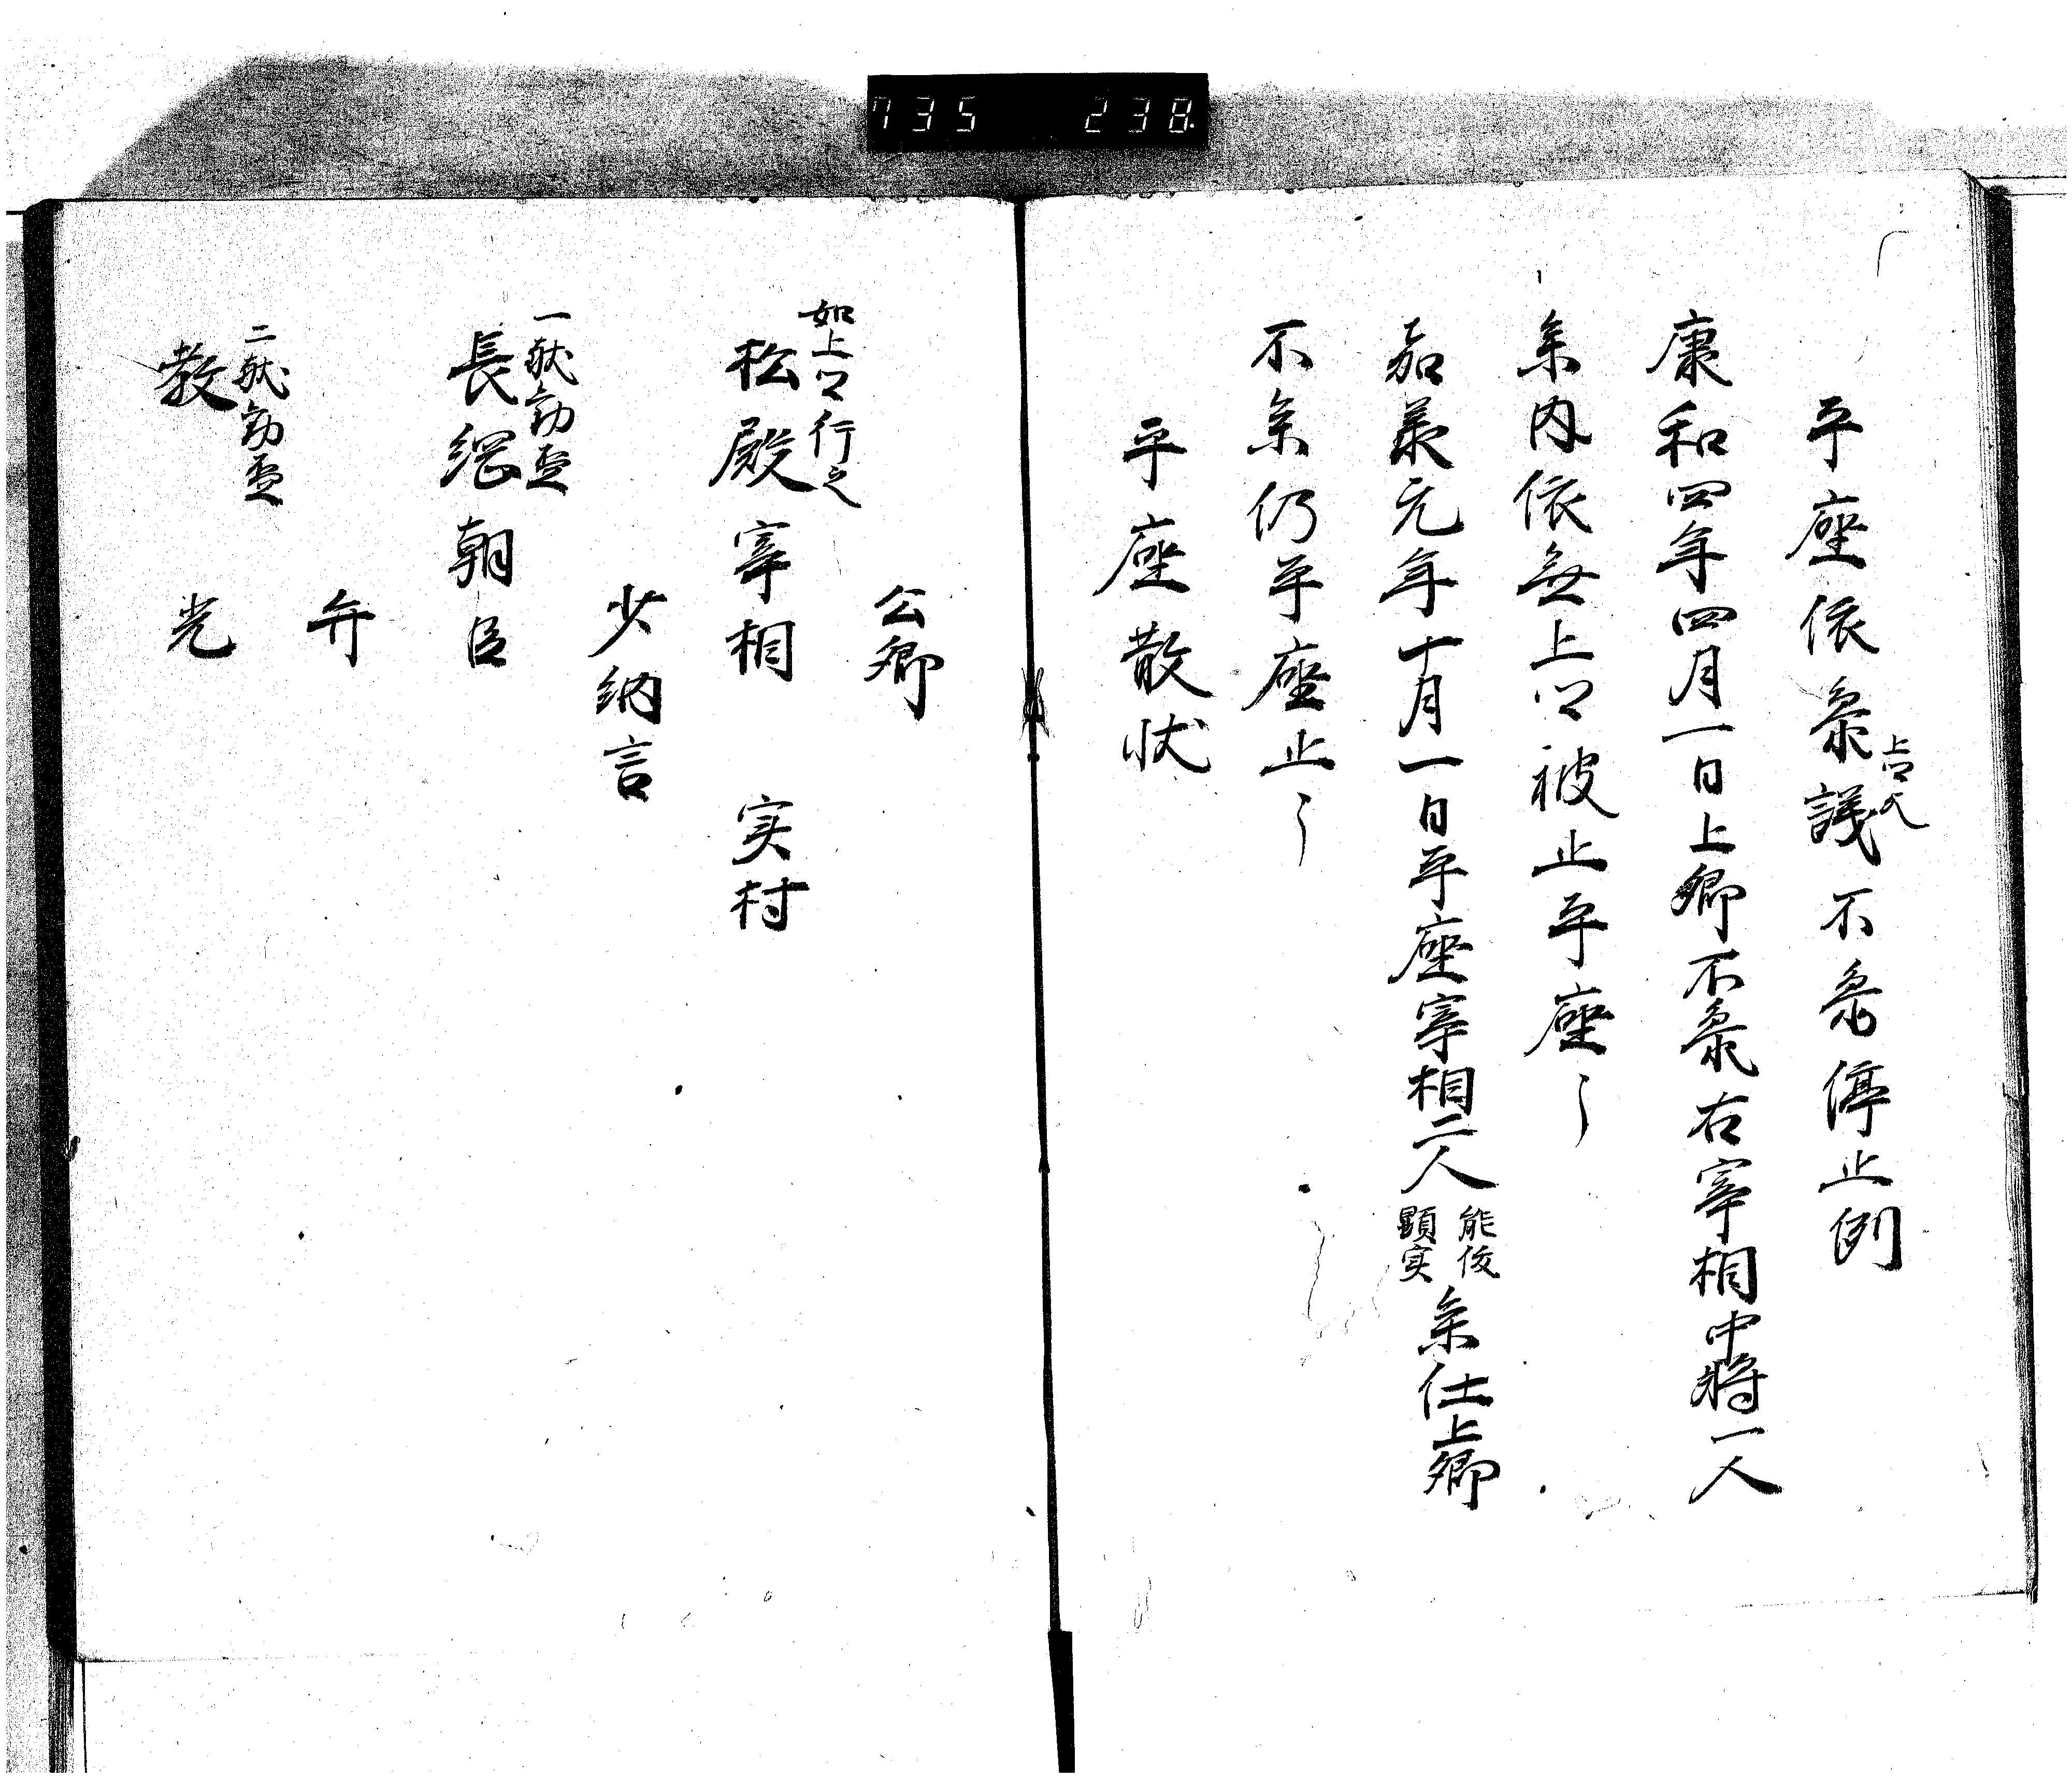 735 238.
平座依参議不参停止例
上口欠
康和四年四月一日上卿不参右宰相中将一人
参内依無上口被止平座々
嘉承元年十月一日平座宰相二人能俊顕実参仕上卿
不参仍平座止々
平座散状
公卿
如上口行之
松殿宰相 実村
少納言
一献勧盃
長綱朝臣
弁
二献勧盃
教光